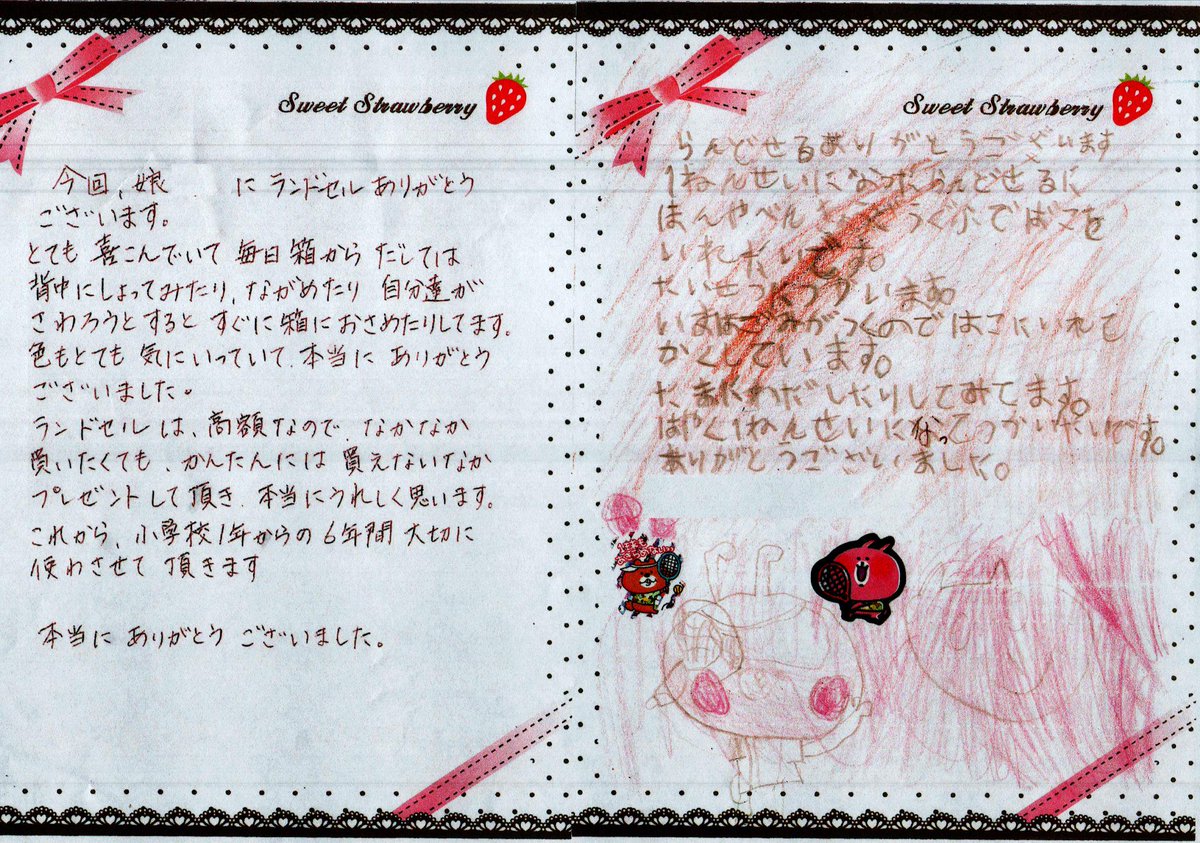 Sweet Strawberry
今回、娘 に ランドセル ありがとう
ございます。
とても 喜こんでいて 毎日 箱から だしては
背中にしょってみたり、ながめたり 自分達が
さわろうとすると すぐに箱におさめたりしてます。
色もとても 気にいっていて、本当に ありがとう
ございました。
ランドセル は、高額なので、なかなか
買いたくても、かんたんには 買えないなか
プレゼント して 頂き、本当にうれしく思います。
これから、小学校1年からの 6年間 大切に
使わさせて 頂きます
本当に ありがとう ございました。
Sweet Strawberry
らんどせるありがとうございます
1ねんせいになったららんどせるに
ほんやべん うぐぶでばこを
いれたいです。
たいせつにつかいます。
いまはごみがつくのではこにいれて
かくしています。
たまにわだしたりしてみてます。
はやく1ねんせいになってつかいたいです。
ありがとうございました。